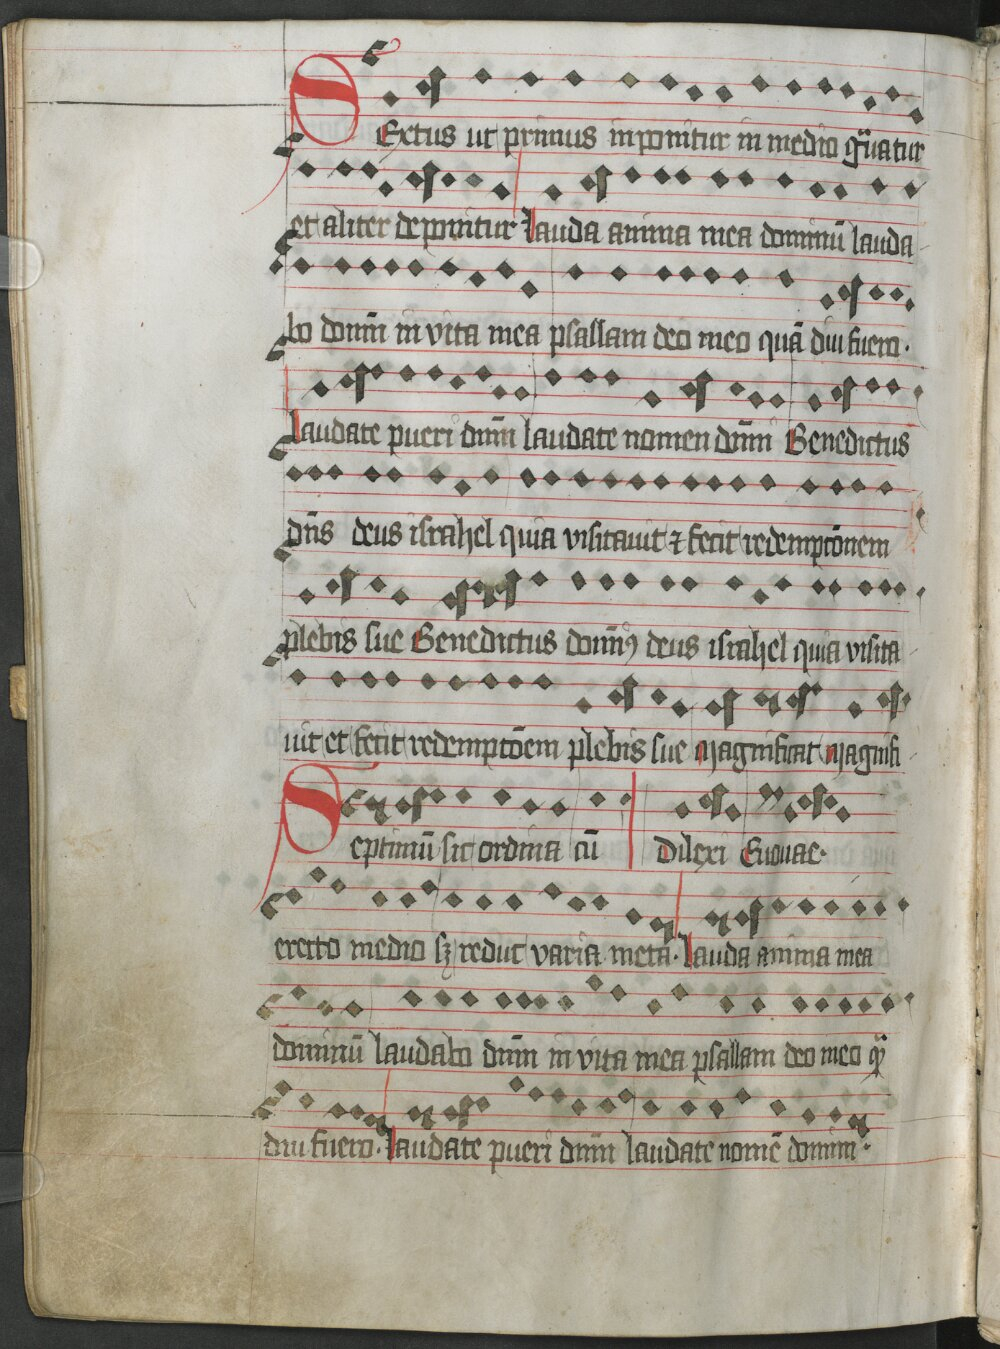 SExtus ut primus inponitur in medio grauatur
et aliter deponitur Lauda anima mea dominū lauda
bo domī in vita mea psallam deo meo quā diu fuero.
Laudate pueri dnm̄ laudate nomen dnm̄ Benedictus
dn̄s deus israhel quia visitauit ⁊ fecit redemptōnem
plebis sue Benedictus domīꝰ deus israhel quia visita
uit et fecit redemptōem plebis sue Magnificat Magnifi
Septimū sic ordina cū Dilexi Euouae.
erecto medio sꝫ reduc varia meta. Lauda anima mea
dominū laudabo dnm̄ in vita mea psallam deo meo qᷓ
diu fuero. Laudate pueri dnm̄ laudate nomē domini.